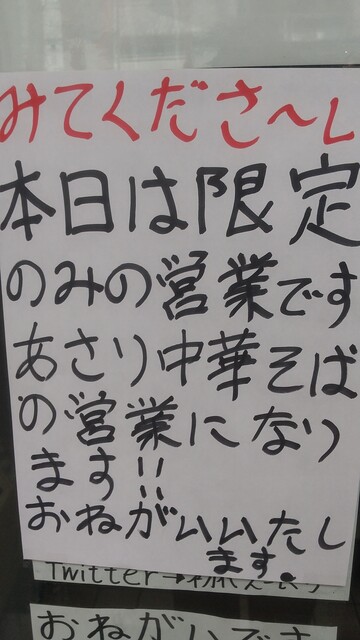 みてくださ〜い
本日は限定
のみの営業です
あさり中華そば
の営業になり
ます!!
おねがいいたし
ます。
Twitter→
おねがいです